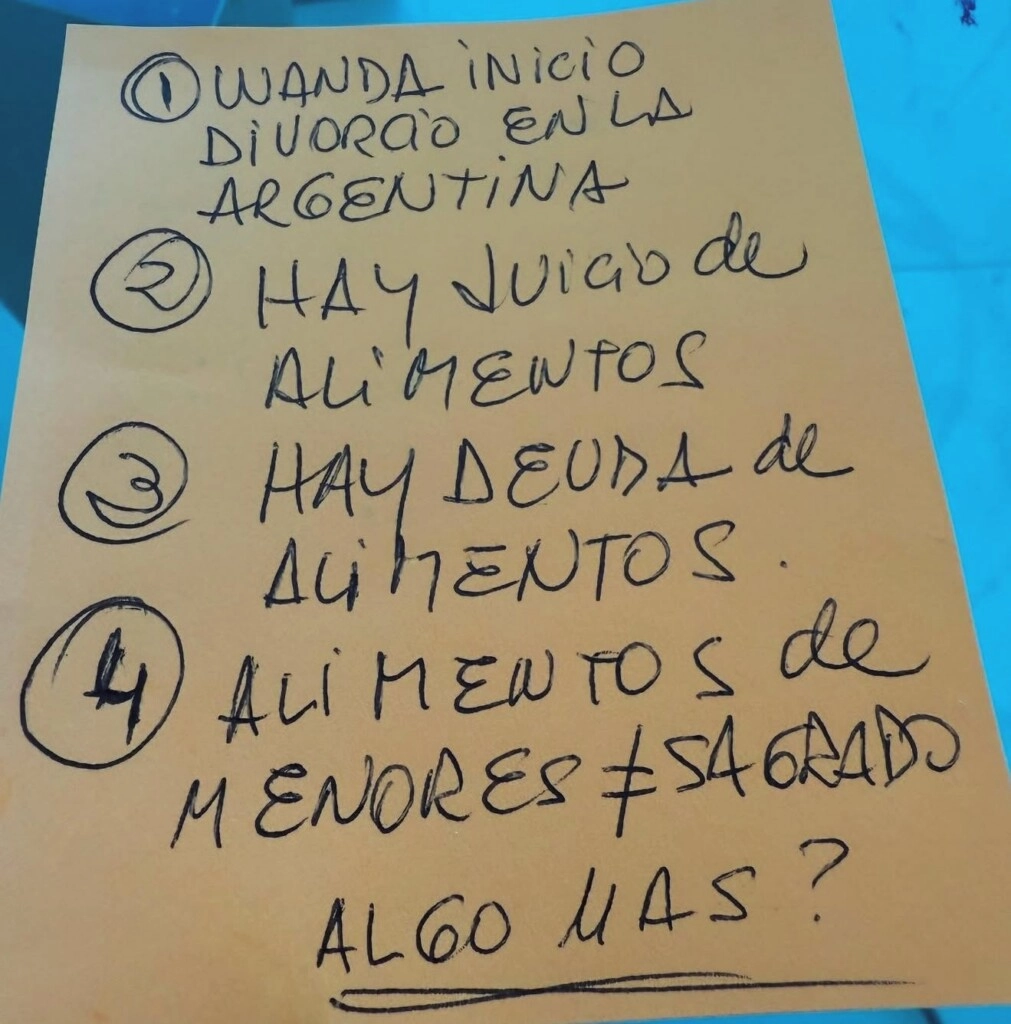 ① WANDA iNiCiO
DiVORCiO EN LA
ARGENTiNA
② HAY JUiCiO de
ALiMENTOS
③ HAY DEUDA de
ALiMENTOS.
④ ALiMENTOS de
MENORES ≠ SAGRADO
ALGO MAS?